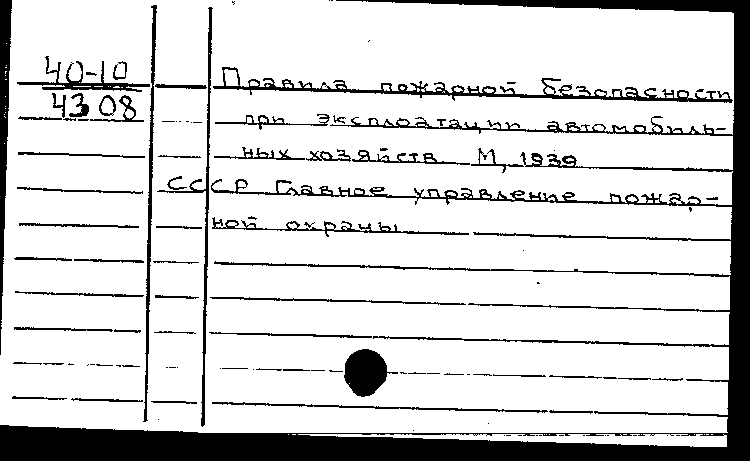 40-10
4308
Правила пожарной безопасности
при эксплоатации автомобиль-
ных хозяйств М, 1939
СССР Главное управление пожар-
ной охраны